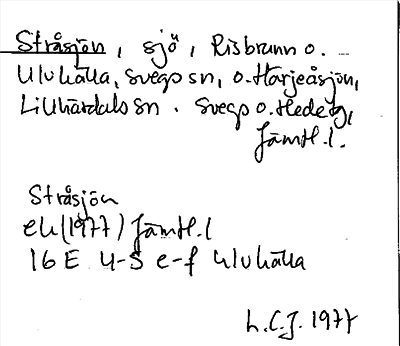 Stråsjön, sjö, Risbrunn o.
Ulvkälla, Svegs sn, o. Härjeåsjön,
Lillhärdals sn. Svegs o. Hede tg,
Jämtl. l.
Stråsjön
ek (1977) Jämtl. l
16 E 4-5 e-f Ulvkälla
L.C.J. 1977